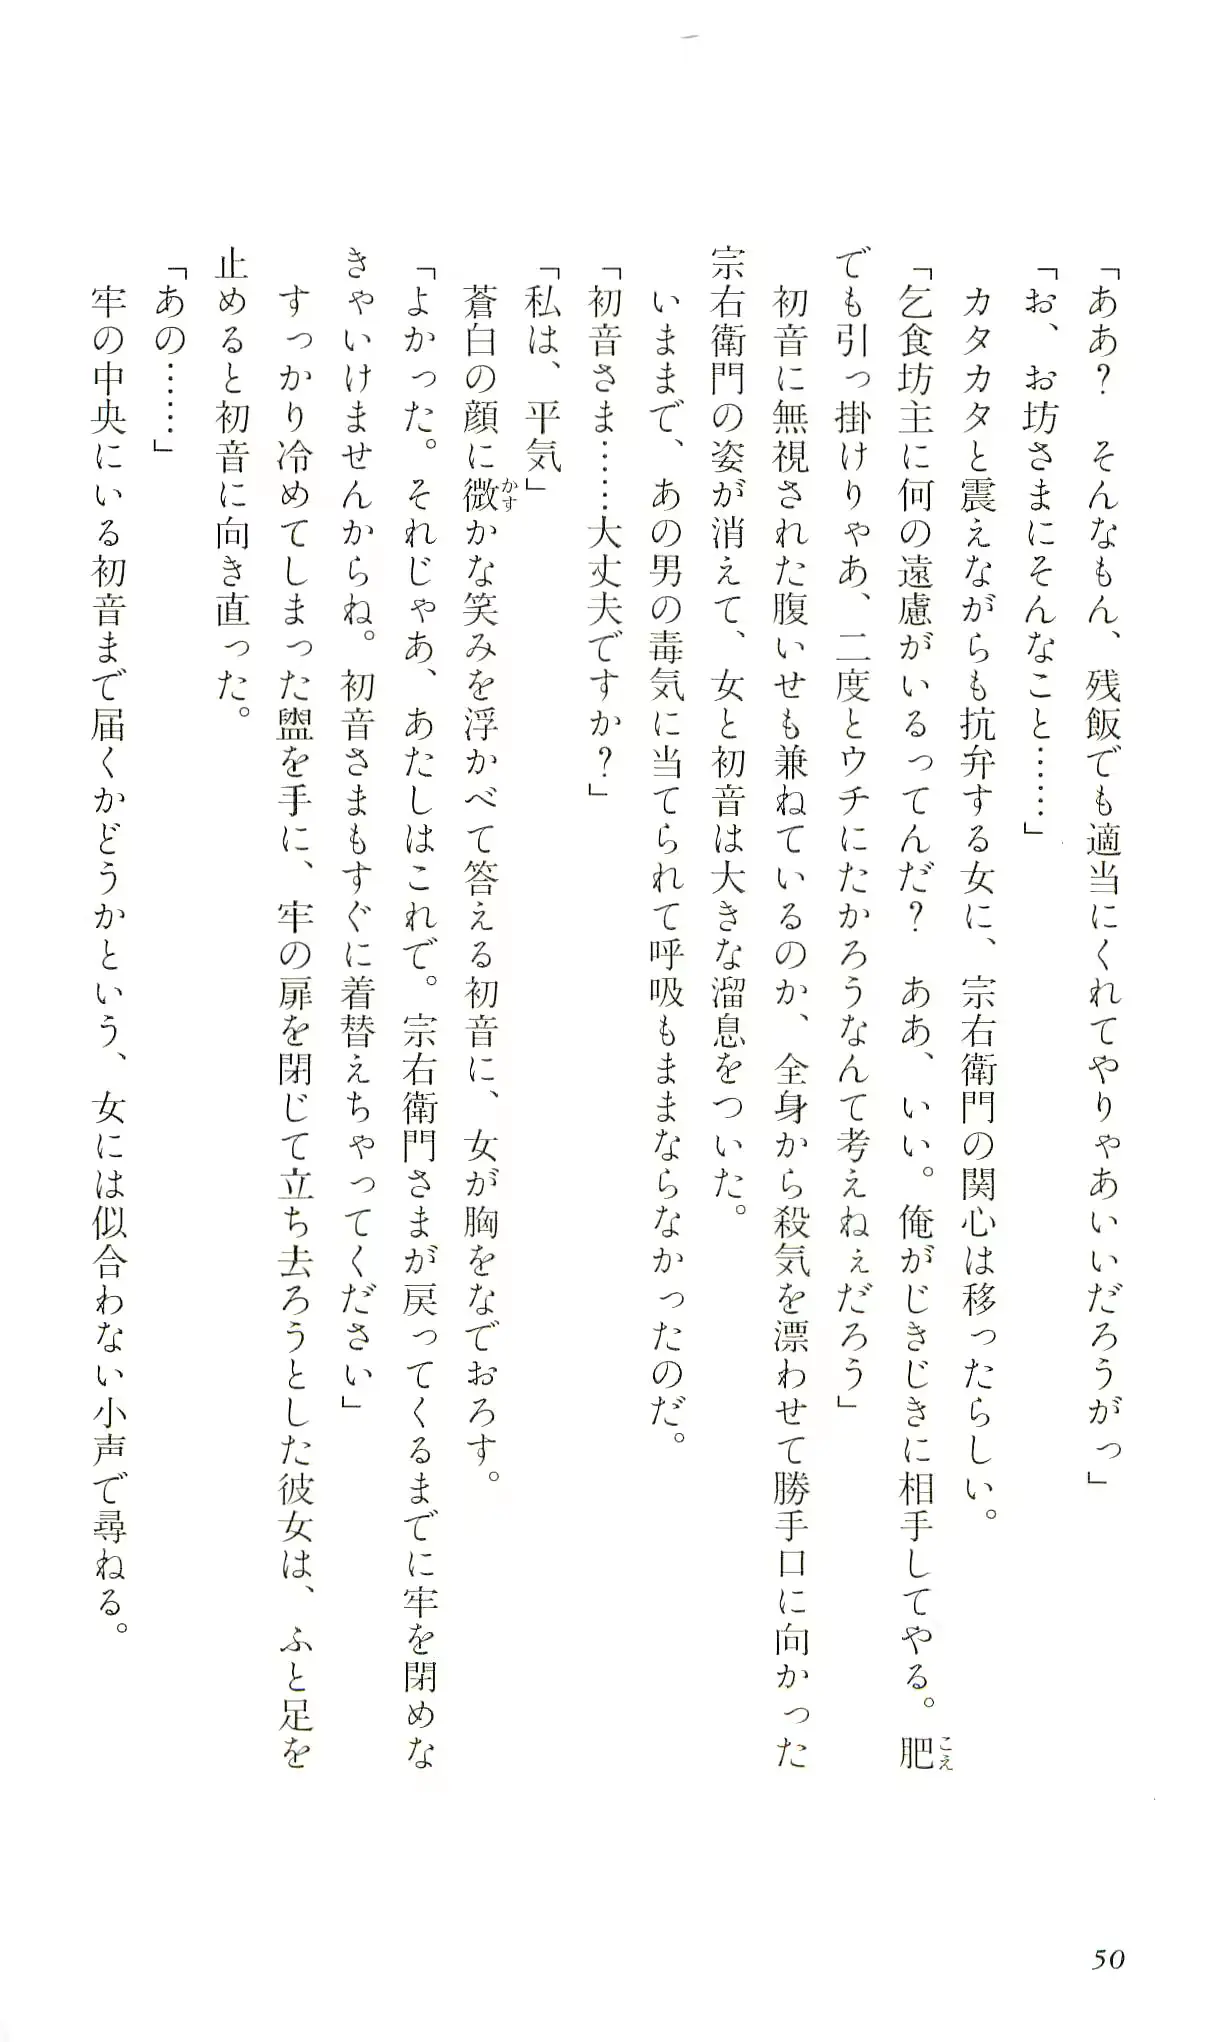 「ああ？　そんなもん、残飯でも適当にくれてやりゃあいいだろうがっ」
「お、お坊さまにそんなこと……」
カタカタと震えながらも抗弁する女に、宗右衛門の関心は移ったらしい。
「乞食坊主に何の遠慮がいるってんだ？　ああ、いい。俺がじきじきに相手してやる。肥
でも引っ掛けりゃあ、二度とウチにたかろうなんて考えねぇだろう」
初音に無視された腹いせも兼ねているのか、全身から殺気を漂わせて勝手口に向かった
宗右衛門の姿が消えて、女と初音は大きな溜息をついた。
いままで、あの男の毒気に当てられて呼吸もままならなかったのだ。
「初音さま……大丈夫ですか？」
「私は、平気」
蒼白の顔に微かな笑みを浮かべて答える初音に、女が胸をなでおろす。
「よかった。それじゃあ、あたしはこれで。宗右衛門さまが戻ってくるまでに牢を閉めな
きゃいけませんからね。初音さまもすぐに着替えちゃってください」
すっかり冷めてしまった盥を手に、牢の扉を閉じて立ち去ろうとした彼女は、ふと足を
止めると初音に向き直った。
「あの……」
牢の中央にいる初音まで届くかどうかという、女には似合わない小声で尋ねる。
50